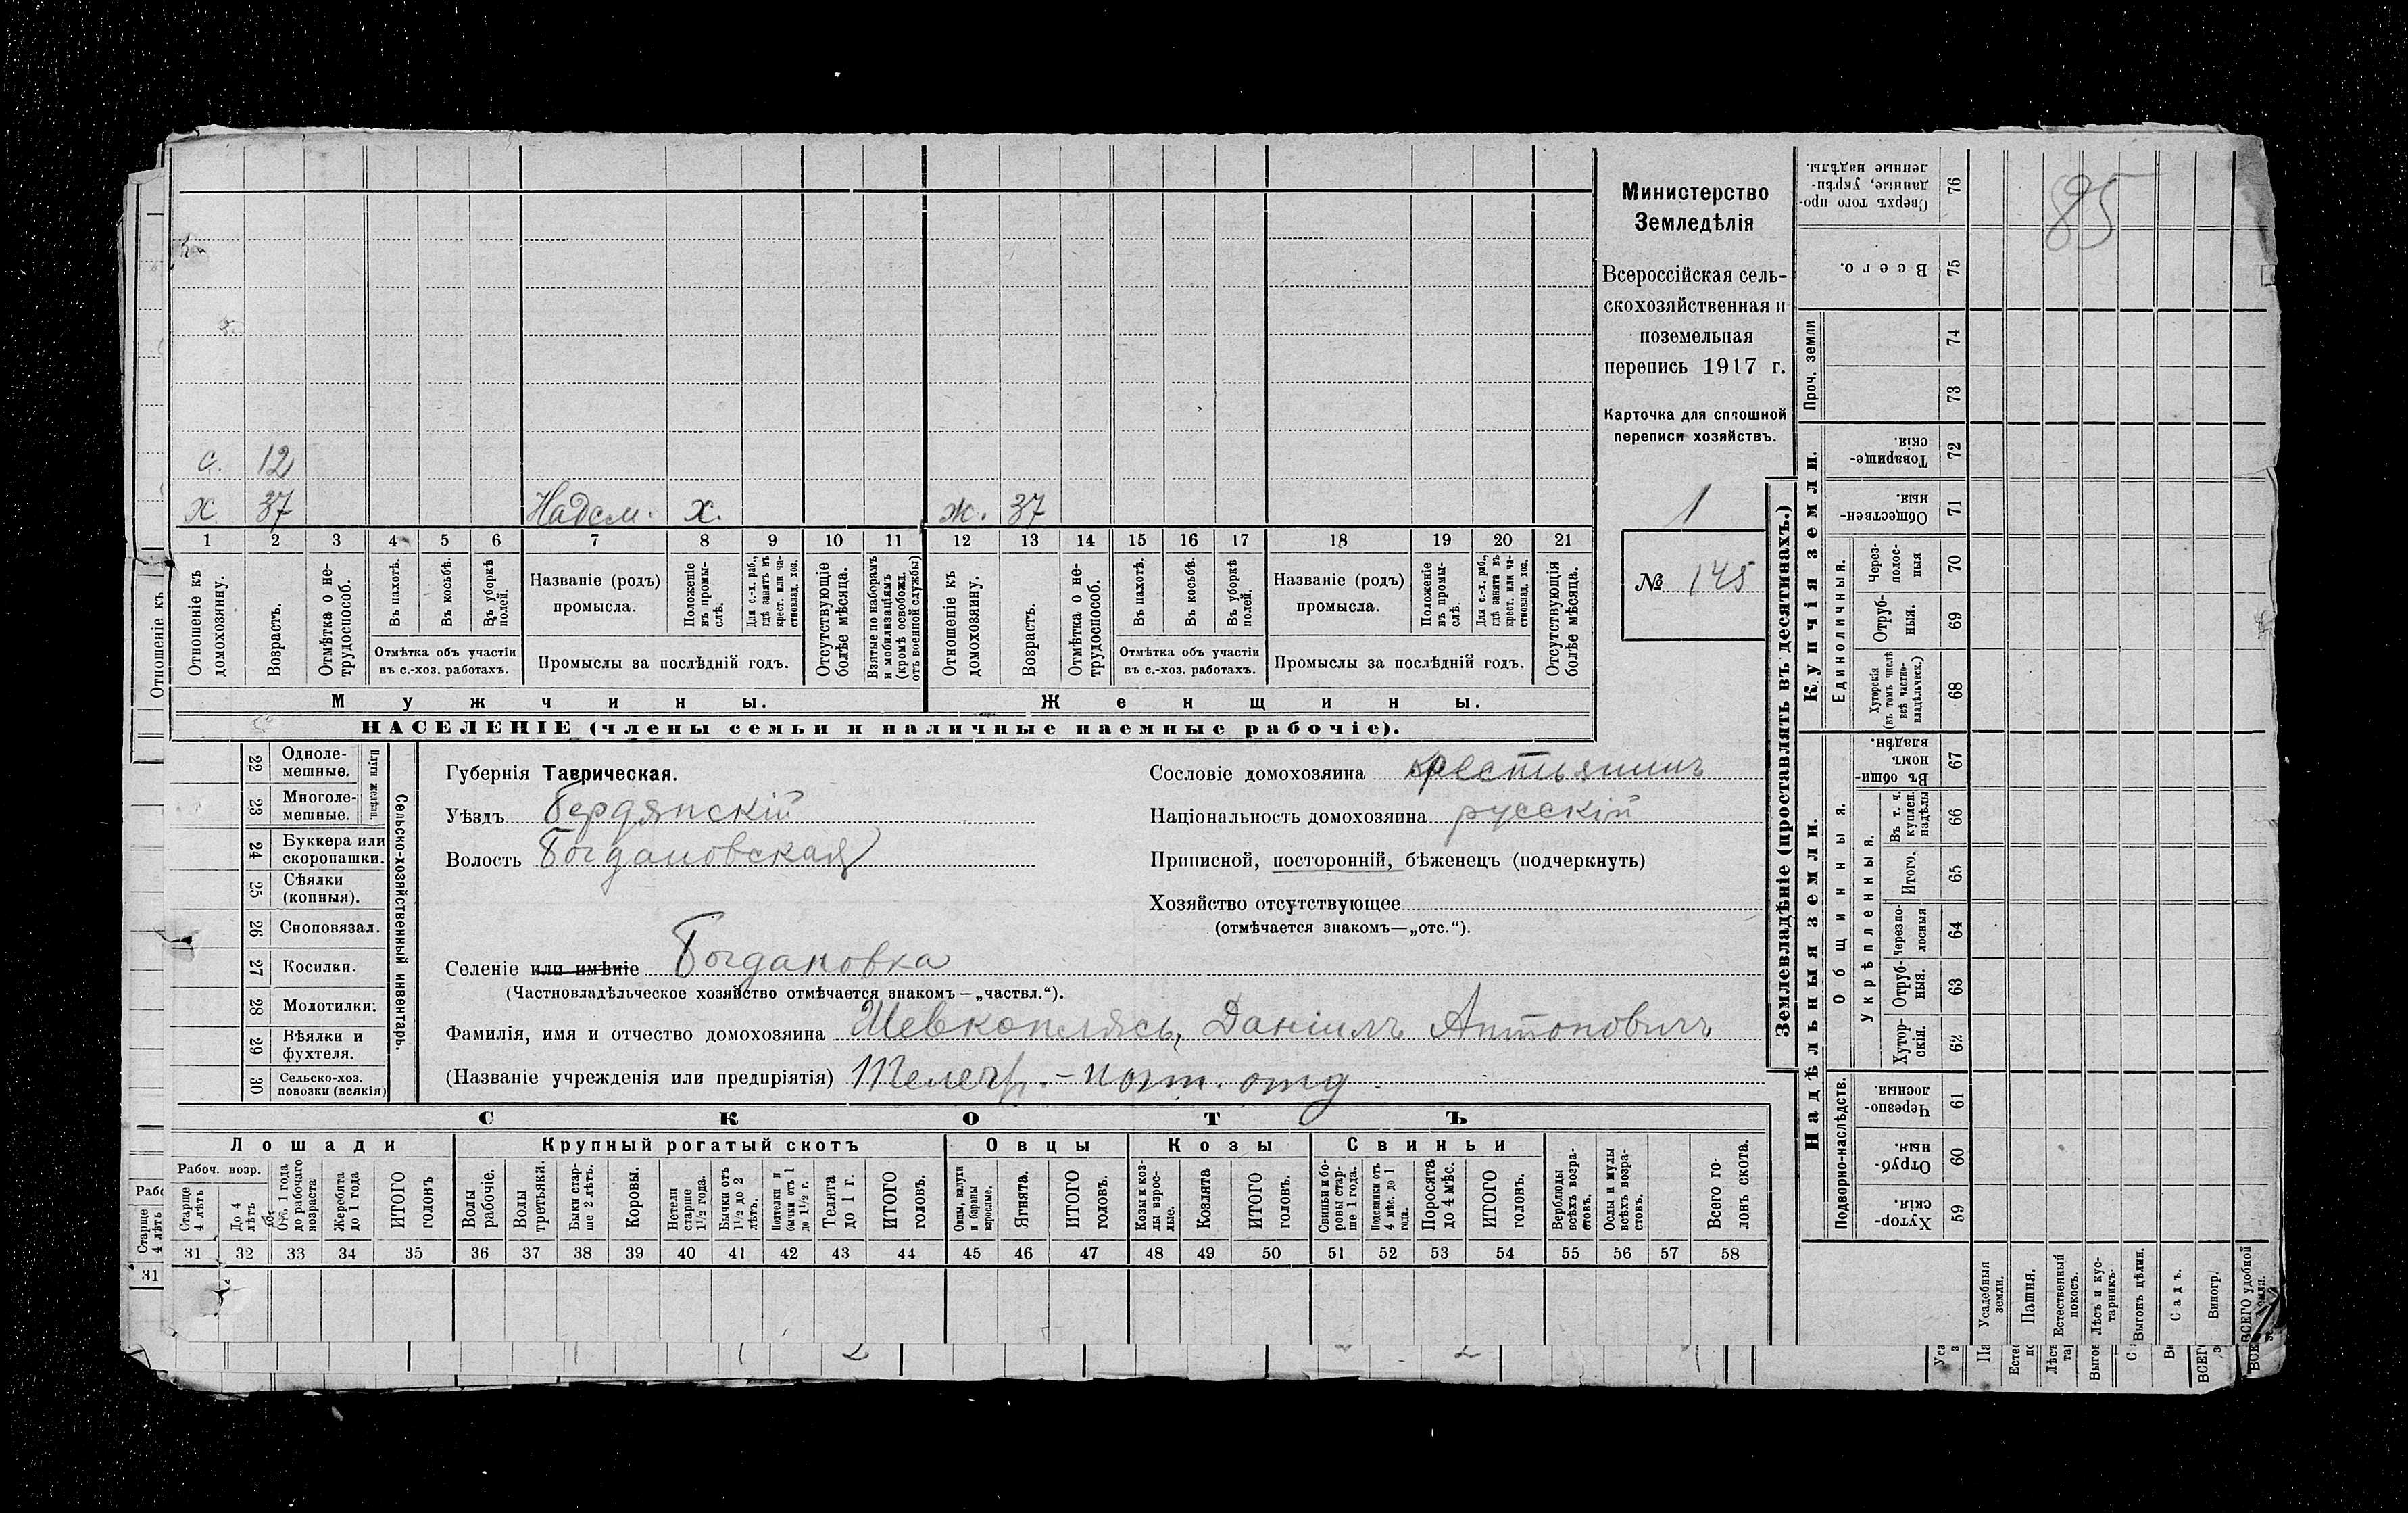 с. 12
х 37 Надсм. х. ж. 37
1 2 3 4 5 6 7 8 9 10 11 12 13 14 15 16 17 18 19 20 21
Отношеніе къ домохозяину.
Возрастъ.
Отмѣтка о не-трудоспособ.
Въ пахотѣ.
Въ косьбѣ.
Въ уборкѣ полей.
Отмѣтка объ участіи
въ с.-хоз. работахъ.
Названіе (родъ)
промысла.
Положеніе въ промы-слѣ.
Для с.-х. раб., гдѣ занятъ въ крест. или ча-стновлад. хоз.
Промыслы за послѣдній годъ.
Отсутствующіе болѣе мѣсяца.
Взятые по наборамъ и мобилизаціямъ (кромѣ освобожд. отъ военной службы)
Отношеніе къ домохозяину.
Возрастъ.
Отмѣтка о не-трудоспособ.
Въ пахотѣ.
Въ косьбѣ.
Въ уборкѣ полей.
Отмѣтка объ участіи
въ с.-хоз. работахъ.
Названіе (родъ)
промысла.
Положеніе въ промы-слѣ.
Для с.-х. раб., гдѣ занята въ крест. или ча-стновлад. хоз.
Промыслы за послѣдній годъ.
Отсутствующія болѣе мѣсяца.
Мужчины. Женщины.
НАСЕЛЕНІЕ (члены семьи и наличные наемные рабочіе).
Министерство
Земледѣлія
Всероссійская сель-
скохозяйственная и
поземельная
перепись 1917 г.
Карточка для сплошной
переписи хозяйствъ.
1
№ 145
22 Одноле-мешные.
23 Многоле-мешные.
Плуги желѣзн.
24 Буккера или скоропашки.
25 Сѣялки (конныя).
26 Сноповязал.
27 Косилки.
28 Молотилки.
29 Вѣялки и фухтеля.
30 Сельско-хоз. повозки (всякія)
Сельско-хозяйственный инвентарь.
Губернія Таврическая.
Уѣздъ Бердянскій
Волость Богдановская
Сословіе домохозяина крестьянинъ
Національность домохозяина русскій
Приписной, посторонній, бѣженецъ (подчеркнуть)
Хозяйство отсутствующее
(отмѣчается знакомъ—„отс.“).
Селеніе или имѣніе Богдановка
(Частновладѣльческое хозяйство отмѣчается знакомъ—„частвл.“).
Фамилія, имя и отчество домохозяина Шевкоплясъ, Даніилъ Антоновичъ
(Названіе учрежденія или предпріятія) Телегр.-почт. отд.
СКОТЪ
Лошади Крупный рогатый скотъ Овцы Козы Свиньи
Рабоч. возр.
Старше 4 лѣтъ
До 4 лѣтъ
Отъ 1 года до рабочаго возраста
Жеребята до 1 года
ИТОГО головъ
Волы рабочіе.
Волы третьяки.
Быки стар-ше 2 лѣтъ.
Коровы.
Нетели старше 1½ года.
Бычки отъ 1½ до 2 лѣтъ.
Подтелки и бычки отъ 1 до 1½ г.
Телята до 1 г.
ИТОГО головъ.
Овцы, валухи и бараны взрослые.
Ягнята.
ИТОГО головъ.
Козы и коз-лы взрос-лые.
Козлята
ИТОГО головъ.
Свиньи и бо-ровы стар-ше 1 года.
Подсвинки отъ 4 мѣс. до 1 года.
Поросята до 4 мѣс.
ИТОГО головъ.
Верблюды всѣхъ возра-стовъ.
Ослы и мулы всѣхъ возра-стовъ.
Всего го-ловъ скота.
31 32 33 34 35 36 37 38 39 40 41 42 43 44 45 46 47 48 49 50 51 52 53 54 55 56 57 58
Землевладѣніе (проставлять въ десятинахъ.)
85
Сверхъ того про-данные, укрѣп-ленные надѣлы. 76
Всего. 75
Проч. земли 74
73
Купчія земли.
Товарище-скія. 72
Обществен-ныя. 71
Единоличныя.
Через-полос-ныя 70
Отруб-ныя. 69
Хуторскія (въ томъ числѣ всѣ частно-владѣльческ.) 68
Надѣльныя земли.
Общинныя.
Въ общи-номъ владѣн. 67
Укрѣпленныя.
Въ т. ч. куплен. надѣлы 66
Итого. 65
Черезпо-лосныя 64
Отруб-ныя. 63
Хутор-скія. 62
Подворно-наслѣдств.
Черезпо-лосныя. 61
Отруб-ныя. 60
Хутор-скія. 59
Усадебныя земли.
Пашня.
Естественный покосъ.
Лѣсъ и кус-тарникъ.
Выгонъ цѣлин.
Садъ.
Виногр.
ВСЕГО удобной
Отношеніе къ
Старше 4 лѣтъ
31